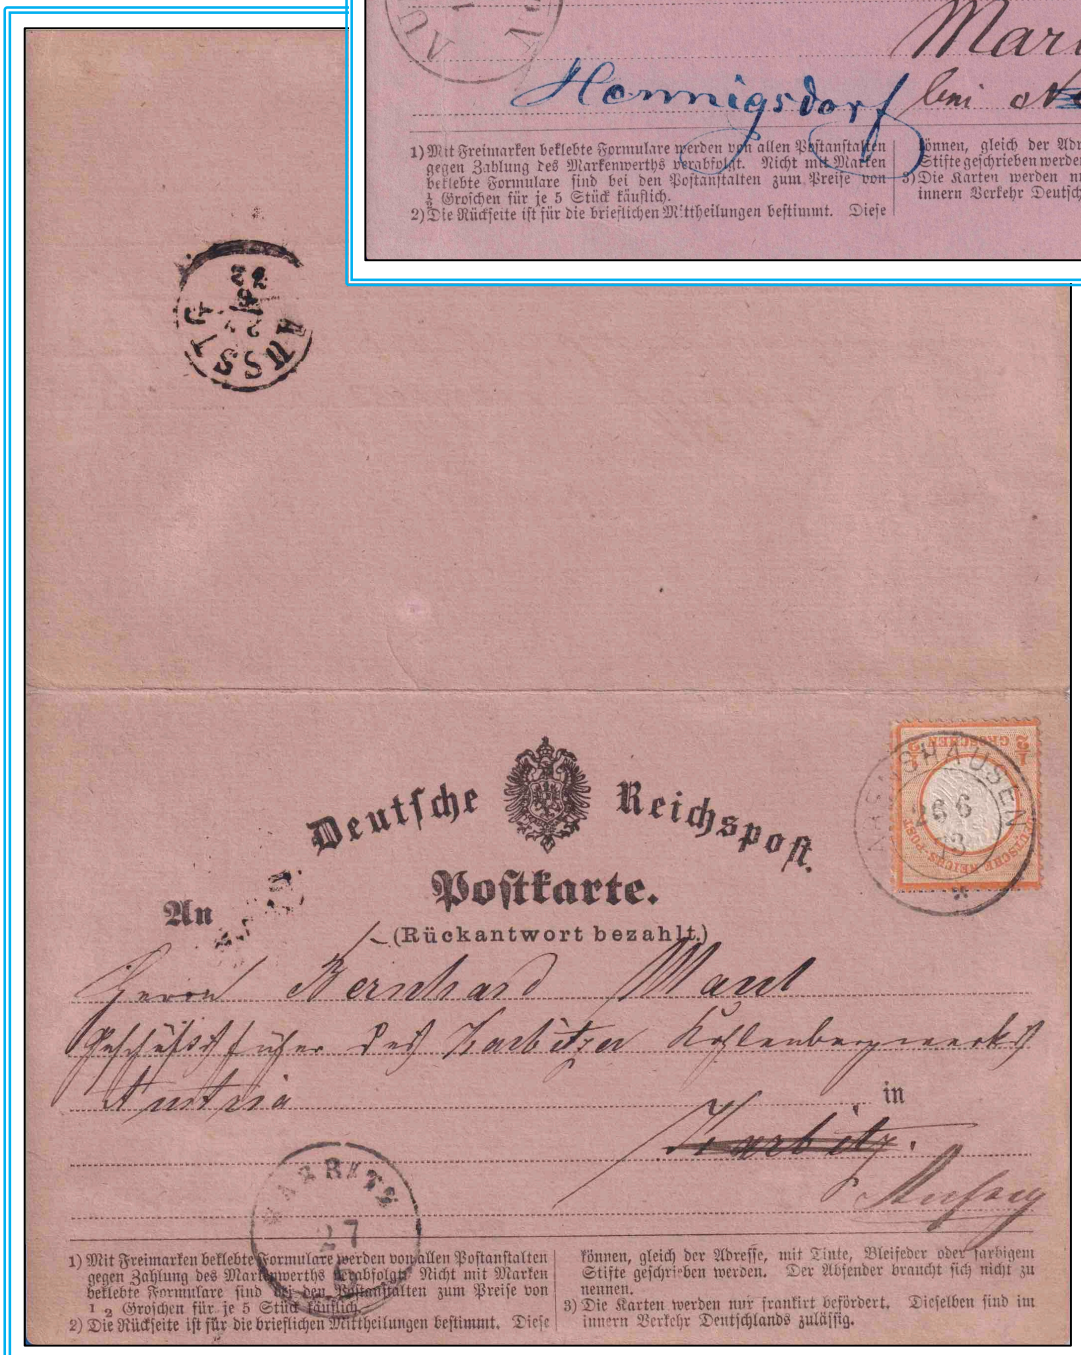 AU
Mar
Hennigsdorf bei
1) Mit Freimarken beklebte Formulare werden von allen Postanstalten
gegen Zahlung des Markenwerths verabfolgt. Nicht mit Marken
beklebte Formulare sind bei den Postanstalten zum Preise von
½ Groschen für je 5 Stück käuflich.
2) Die Rückseite ist für die brieflichen Mittheilungen bestimmt. Diese
können, gleich der Adr
Stifte geschrieben werde
3) Die Karten werden n
innern Verkehr Deutsch
AUSSIG
Deutsche Reichspost.
Postkarte.
(Rückantwort bezahlt.)
½ GROSCHEN ½
DEUTSCHE REICHS-POST
SHAUSEN
26 6
73
An
Herrn Bernhard Maul
Geschäftsführer des Karbitzer Kohlenbergwerks
Austria
in
Karbitz.
Aussig
KARBITZ
27
1) Mit Freimarken beklebte Formulare werden von allen Postanstalten
gegen Zahlung des Markenwerths verabfolgt. Nicht mit Marken
beklebte Formulare sind bei den Postanstalten zum Preise von
1 2 Groschen für je 5 Stück käuflich.
2) Die Rückseite ist für die brieflichen Mittheilungen bestimmt. Diese
können, gleich der Adresse, mit Tinte, Bleifeder oder farbigem
Stifte geschrieben werden. Der Absender braucht sich nicht zu
nennen.
3) Die Karten werden nur frankirt befördert. Dieselben sind im
innern Verkehr Deutschlands zulässig.